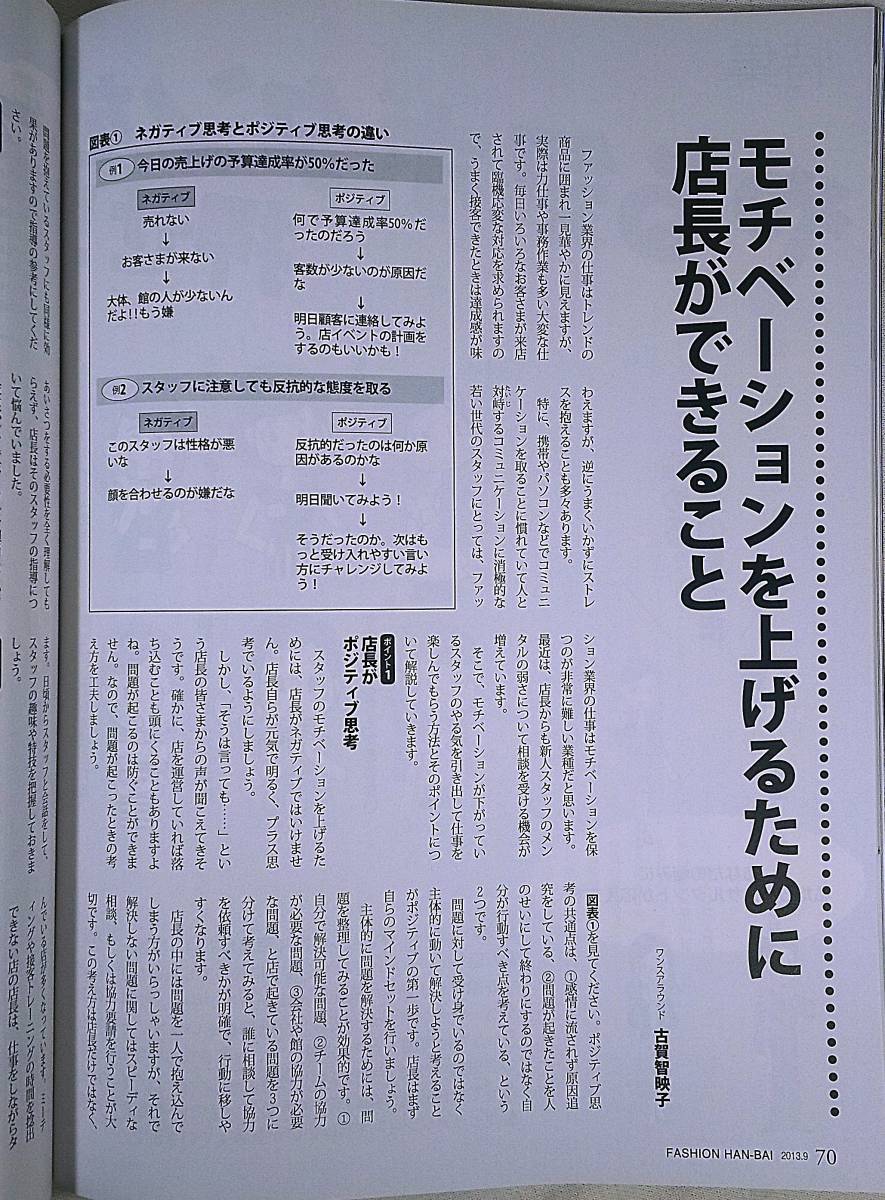 モチベーションを上げるために
店長ができること
ワンスアラウンド 古賀智映子
ファッション業界の仕事はトレンドの
商品に囲まれ一見華やかに見えますが、
実際は力仕事や事務作業も多い大変な仕
事です。毎日いろいろなお客さまが来店
されて臨機応変な対応を求められますの
で、うまく接客できたときは達成感が味
わえますが、逆にうまくいかずにストレ
スを抱えることも多々あります。
特に、携帯やパソコンなどでコミュニ
ケーションを取ることに慣れていて人と
対峙するコミュニケーションに消極的な
たいじ
若い世代のスタッフにとっては、ファッ
ション業界の仕事はモチベーションを保
つのが非常に難しい業種だと思います。
最近は、店長からも新人スタッフのメン
タルの弱さについて相談を受ける機会が
増えています。
そこで、モチベーションが下がってい
るスタッフのやる気を引き出して仕事を
楽しんでもらう方法とそのポイントにつ
いて解説していきます。
ポイント1
店長が
ポジティブ思考
スタッフのモチベーションを上げるた
めには、店長がネガティブではいけませ
ん。店長自らが元気で明るく、プラス思
考でいるようにしましょう。
しかし、「そうは言っても……」とい
う店長の皆さまからの声が聞こえてきそ
うです。確かに、店を運営していれば落
ち込むことも頭にくることもありますよ
ね。問題が起こるのは防ぐことができま
せん。なので、問題が起こったときの考
え方を工夫しましょう。
図表①を見てください。ポジティブ思
考の共通点は、①感情に流されず原因追
究をしている、②問題が起きたことを人
のせいにして終わりにするのではなく自
分が行動すべき点を考えている、という
2つです。
問題に対して受け身でいるのではなく
主体的に動いて解決しようと考えること
がポジティブの第一歩です。店長はまず
自らのマインドセットを行いましょう。
主体的に問題を解決するためには、問
題を整理してみることが効果的です。①
自分で解決可能な問題、②チームの協力
が必要な問題、③会社や館の協力が必要
な問題、と店で起きている問題を3つに
分けて考えてみると、誰に相談して協力
を依頼すべきかが明確で、行動に移しや
すくなります。
店長の中には問題を一人で抱え込んで
しまう方がいらっしゃいますが、それで
解決しない問題に関してはスピーディな
相談、もしくは協力要請を行うことが大
切です。この考え方は店長だけではなく、
図表① ネガティブ思考とポジティブ思考の違い
例1 今日の売上げの予算達成率が50%だった
ネガティブ
売れない
↓
お客さまが来ない
↓
大体、館の人が少ないん
だよ!!もう嫌
ポジティブ
何で予算達成率50%だ
ったのだろう
↓
客数が少ないのが原因だ
な
↓
明日顧客に連絡してみよ
う。店イベントの計画を
するのもいいかも！
例2 スタッフに注意しても反抗的な態度を取る
ネガティブ
このスタッフは性格が悪
いな
↓
顔を合わせるのが嫌だな
ポジティブ
反抗的だったのは何か原
因があるのかな
↓
明日聞いてみよう！
↓
そうだったのか。次はも
っと受け入れやすい言い
方にチャレンジしてみよ
う！
FASHION HAN-BAI 2013.9 70
問題を抱えているスタッフにも同様に効
果がありますので指導の参考にしてくだ
さい。
あいさつをする必要性を全く理解しても
らえず、店長はそのスタッフの指導につ
いて悩んでいました。
ます。日頃からスタッフと会話をして、
スタッフの趣味や特技を把握しておきま
しょう。
んでいる店が多くなっています。ミーテ
ィングや接客トレーニングの時間を捻出
できない店の店長は、仕事をしながらタ